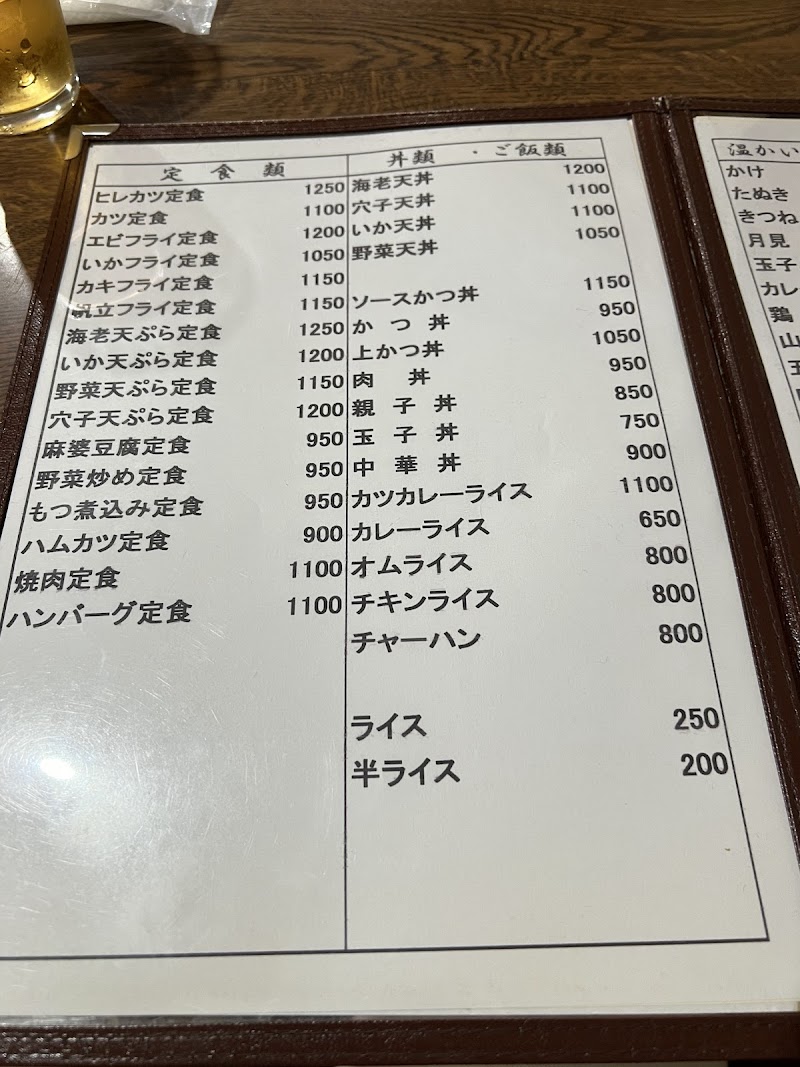 定食類
ヒレカツ定食 1250
カツ定食 1100
エビフライ定食 1200
いかフライ定食 1050
カキフライ定食 1150
帆立フライ定食 1150
海老天ぷら定食 1250
いか天ぷら定食 1200
野菜天ぷら定食 1150
穴子天ぷら定食 1200
麻婆豆腐定食 950
野菜炒め定食 950
もつ煮込み定食 950
ハムカツ定食 900
焼肉定食 1100
ハンバーグ定食 1100
丼類・ご飯類
海老天丼 1200
穴子天丼 1100
いか天丼 1100
野菜天丼 1050
ソースかつ丼 1150
かつ丼 950
上かつ丼 1050
肉丼 950
親子丼 850
玉子丼 750
中華丼 900
カツカレーライス 1100
カレーライス 650
オムライス 800
チキンライス 800
チャーハン 800
ライス 250
半ライス 200
温かい
かけ
たぬき
きつね
月見
玉子
カレ
鶏
山